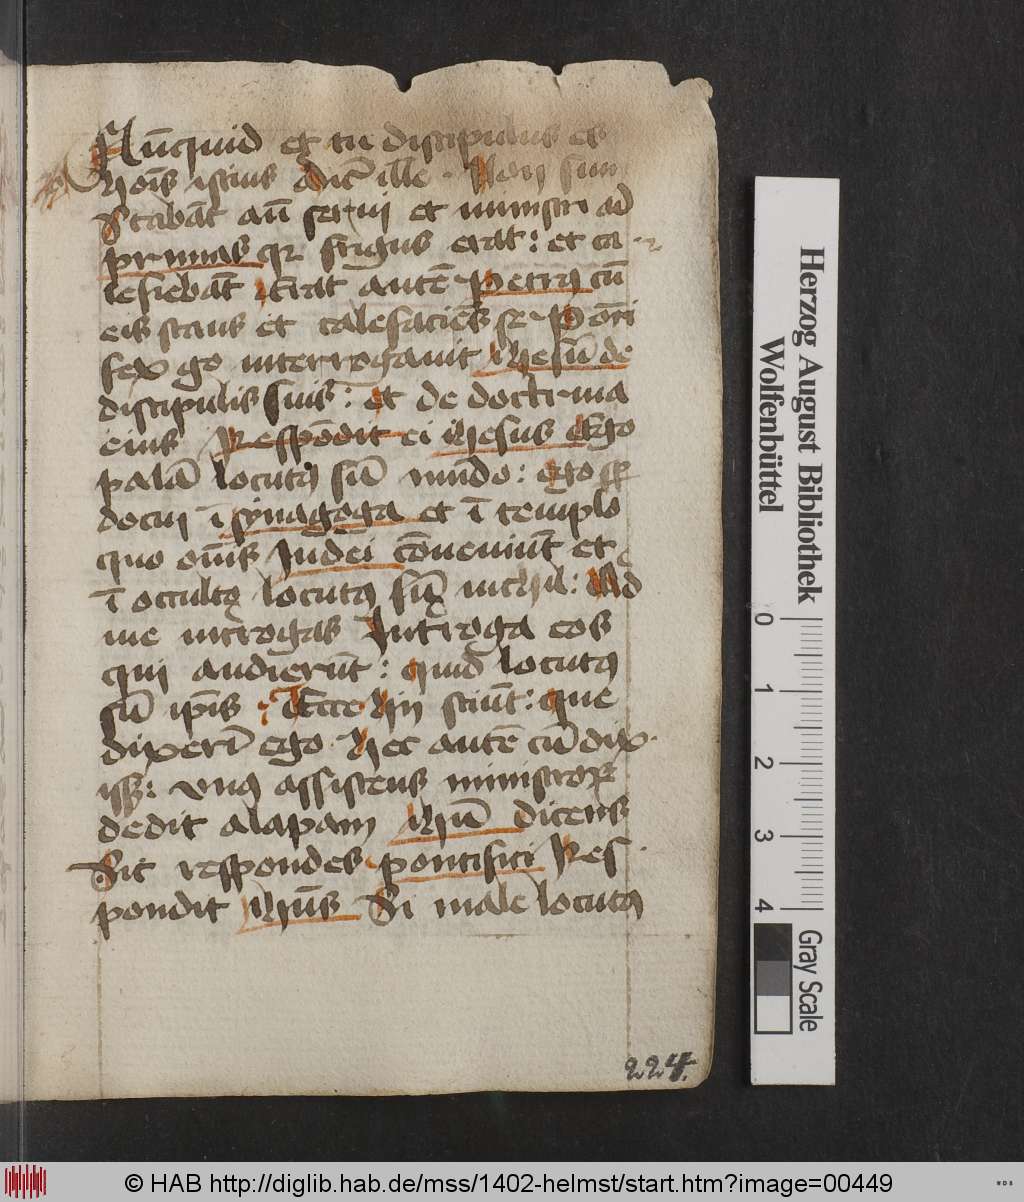 Nūcquid et tu discipulus es
hoīs istius dic̄ ille · Non sum
Stabāt aūt serui et ministri ad
prunas qr frigus erat : et ca
lefiebāt Erat autē Petrus cū
eis stans et calefaciēs se Pōti
fex go interrogauit Ihesū de
discipulis suis : et de doctrina
eius Respōdit ei Ihesus Ego
palā locutꝯ sū mundo : ego sꝑ
docui ī synagoga et ī templo
quo om̄s Iudei cōueniūt et
ī occulto locutꝯ sū nichil : Qid
me int̄rogas Int̄roga eos
qui audierūt : quid locutꝯ
sū ip̄is : Ecce hii sciūt : que
dixeri ego · Hec autē cū dix·
iss; : vnꝯ assistens ministroꝝ
dedit alapam ihm̄ dicens
Sic respondes pontifici Res·
pondit ihūs Si male locutꝯ
224.
Herzog August Bibliothek
Wolfenbüttel
0 1 2 3 4
Gray Scale
© HAB http://diglib.hab.de/mss/1402-helmst/start.htm?image=00449